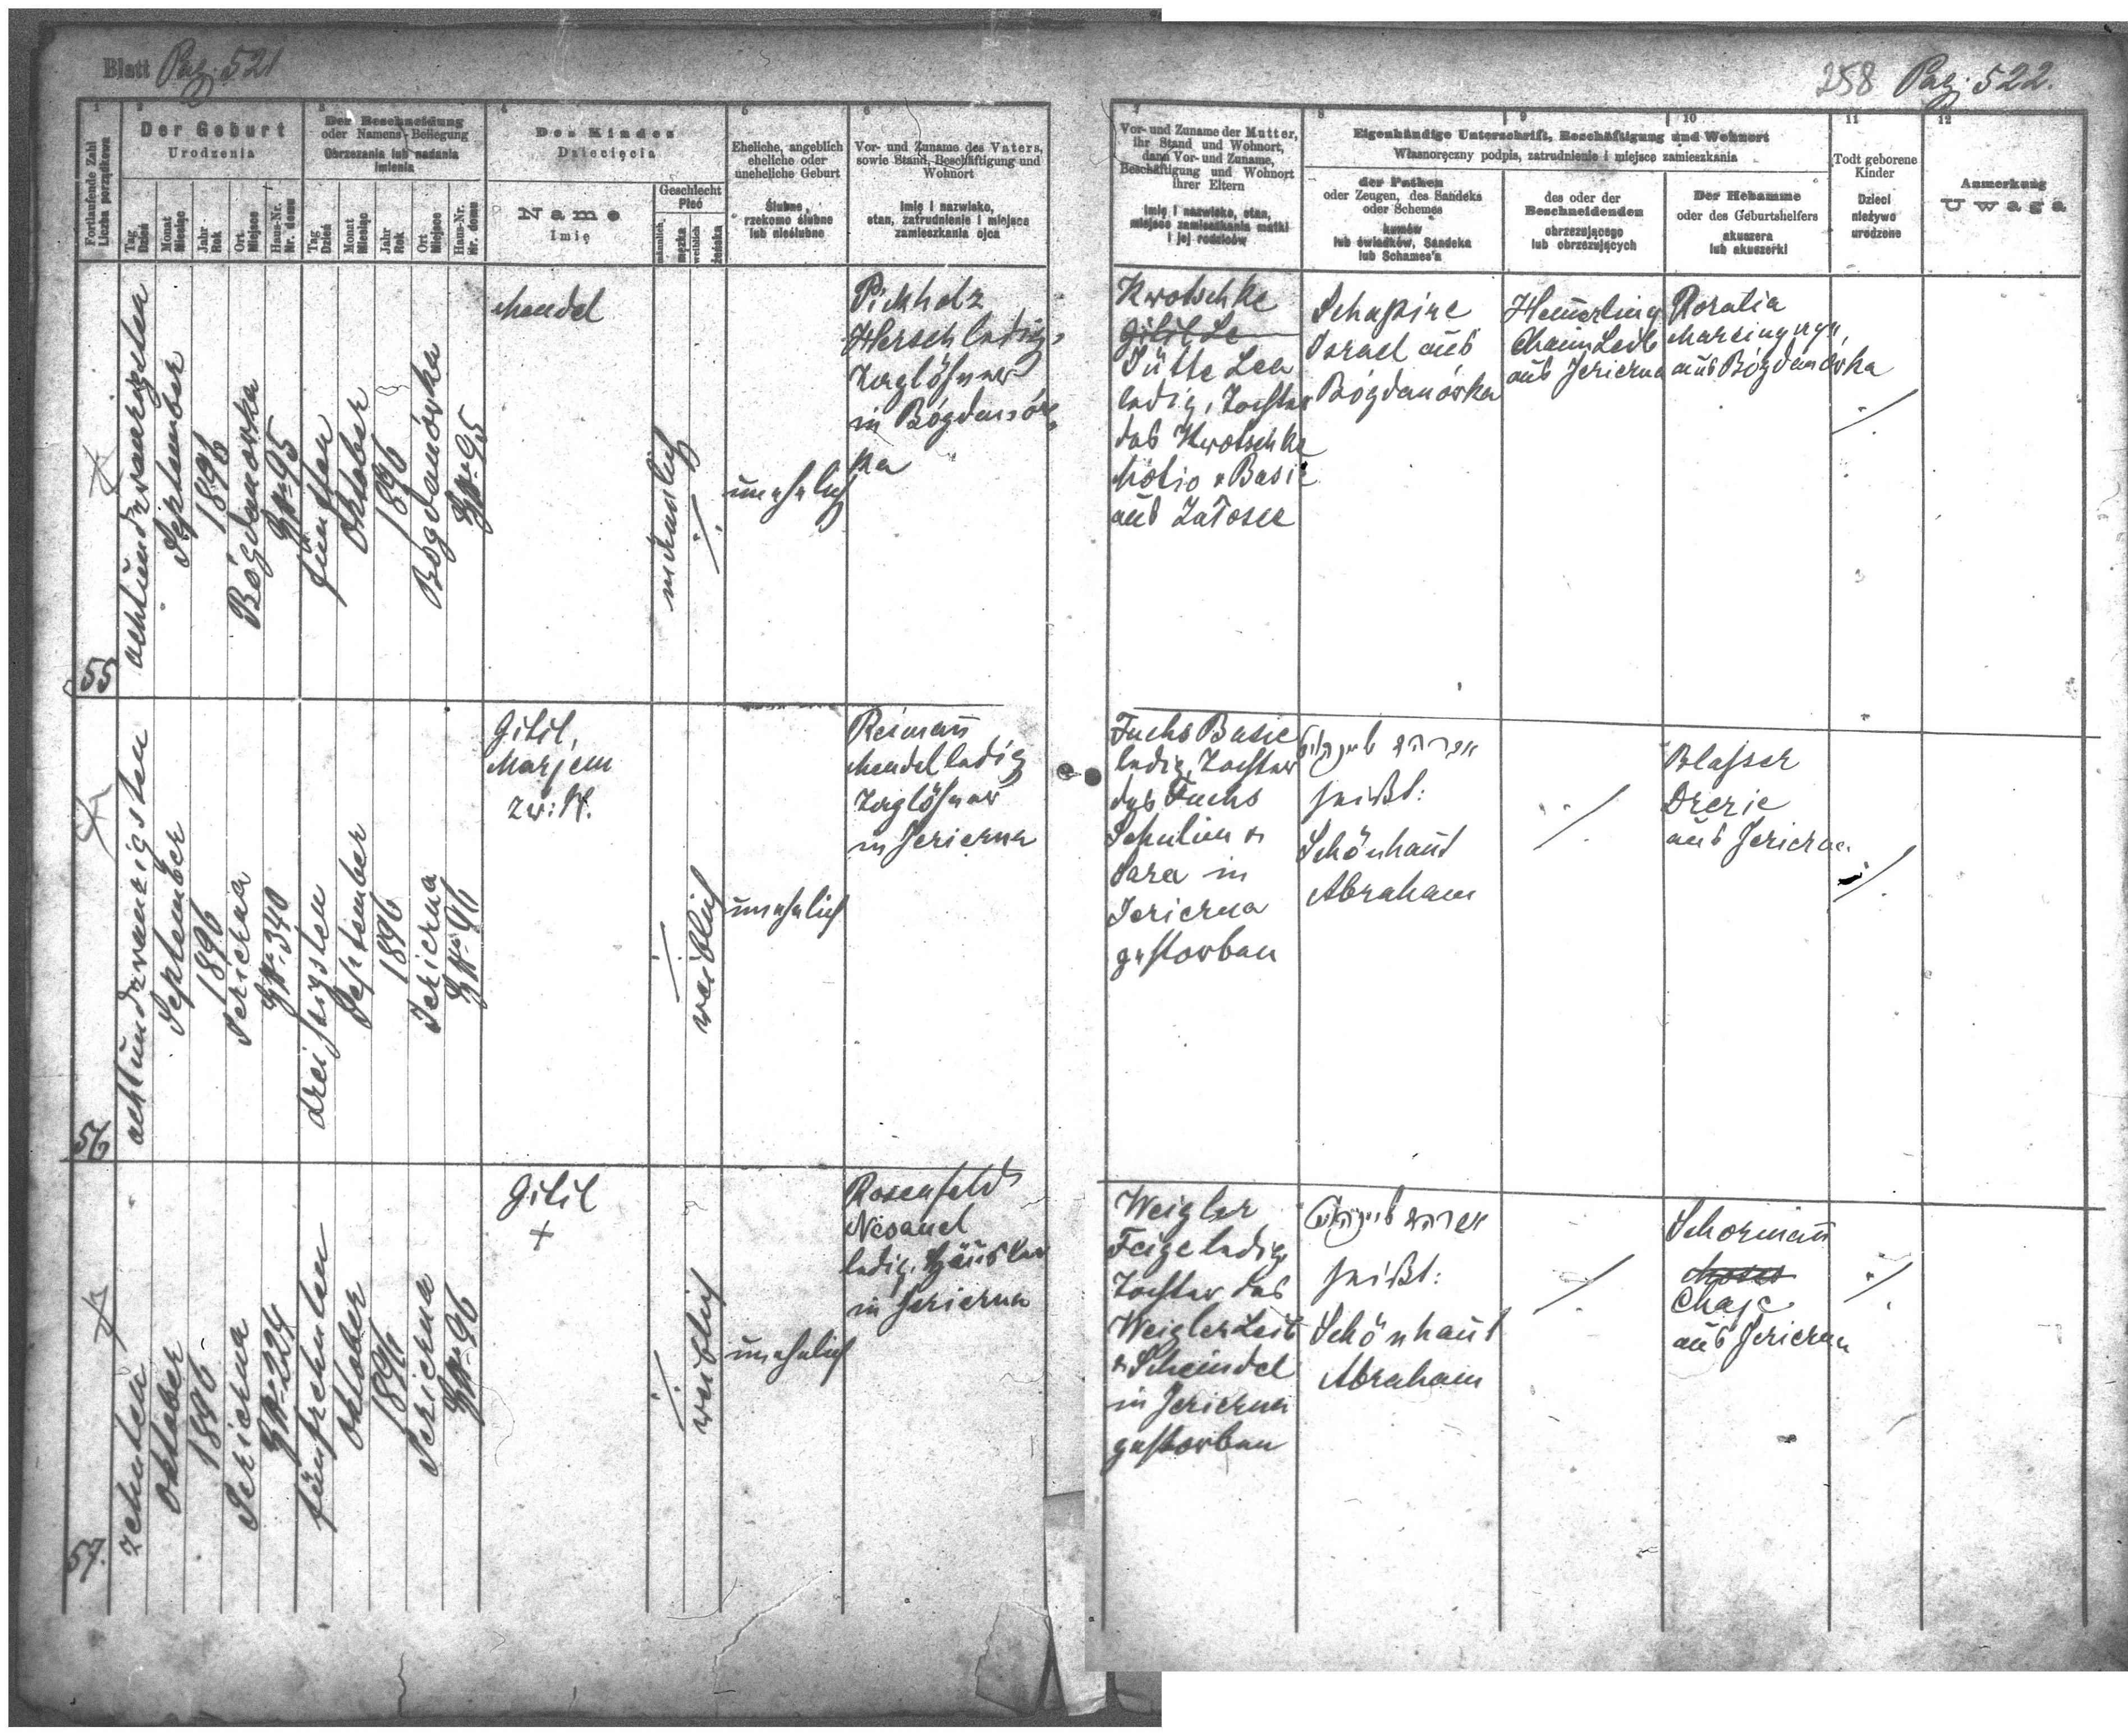 Blatt Pag. 521
258 Pag. 522.
1
2
3
4
5
6
Fortlaufende Zahl
Liczba porządkowa
Der Geburt
Urodzenia
Der Beschneidung
oder Namens-Beilegung
Obrzezania lub nadania
imienia
Des Kindes
Dziecięcia
Eheliche, angeblich
eheliche oder
uneheliche Geburt
Ślubne,
rzekomo ślubne
lub nieślubne
Vor- und Zuname des Vaters,
sowie Stand, Beschäftigung und
Wohnort
Imię i nazwisko,
stan, zatrudnienie i miejsce
zamieszkania ojca
Tag
Dzień
Monat
Miesiąc
Jahr
Rok
Ort
Miejsce
Haus-Nr.
Nr. domu
Tag
Dzień
Monat
Miesiąc
Jahr
Rok
Ort
Miejsce
Haus-Nr.
Nr. domu
Name
Imię
Geschlecht
Płeć
männlich
męzka
weiblich
żeńska
7
8
9
10
11
12
Vor- und Zuname der Mutter,
ihr Stand und Wohnort,
dann Vor- und Zuname,
Beschäftigung und Wohnort
ihrer Eltern
Imię i nazwisko, stan,
miejsce zamieszkania matki
i jej rodziców
Eigenhändige Unterschrift, Beschäftigung und Wohnort
Własnoręczny podpis, zatrudnienie i miejsce zamieszkania
der Pathen
oder Zeugen, des Sandeks
oder Schemes
kumów
lub świadków, Sandeka
lub Schames'a
des oder der
Beschneidenden
obrzezującego
lub obrzezujących
Der Hebamme
oder des Geburtshelfers
akuszera
lub akuszerki
Todt geborene
Kinder
Dzieci
nieżywo
urodzone
Anmerkung
Uwaga
55
achtundzwanzigsten
September
1896
Bógdanówka
HN. 95
fünften
Oktober
1896
Bógdanówka
HN. 95
Mendel
männlich
./.
unehelich
Pickholz
Hersch ledig,
Taglöhner
in Bógdanów-
ka
Kwotschke
Gittl Le
Jütte Lea
ledig, Tochter
des Kwotschke
Motio & Basie
aus Załosce
Schapire
Israel aus
Bógdanówka
Hemerling
Chaim Leib
aus Jezierna
Rozalia
aus Bógdanówka
./.
56
achtundzwanzigsten
September
1896
Jezierna
HN. 340
dreißigsten
September
1896
Jezierna
HN. 96
Gittl,
Marjem
zw: N.
./.
weiblich
unehelich
Reimann
Mendel ledig
Taglöhner
in Jezierna
Fuchs Basie
ledig, Tochter
des Fuchs
Schulim &
Sara in
Jezierna
gestorben
אברהם שיינהויט
heißt:
Schönhaut
Abraham
./.
Blasser
Drezie
aus Jezierna
./.
57.
zehnten
Oktober
1896
Jezierna
HN. 224
fünfzehnten
Oktober
1896
Jezierna
HN. 96
Gittl
+
./.
weiblich
unehelich
Rosenfeld
Nesanel
ledig, Häusler
in Jezierna
Weigler
Feige ledig,
Tochter des
Weigler Leib
& Scheindel
in Jezierna
gestorben
אברהם שיינהויט
heißt:
Schönhaut
Abraham
./.
Schormann
Moses
Chaje
aus Jezierna
./.